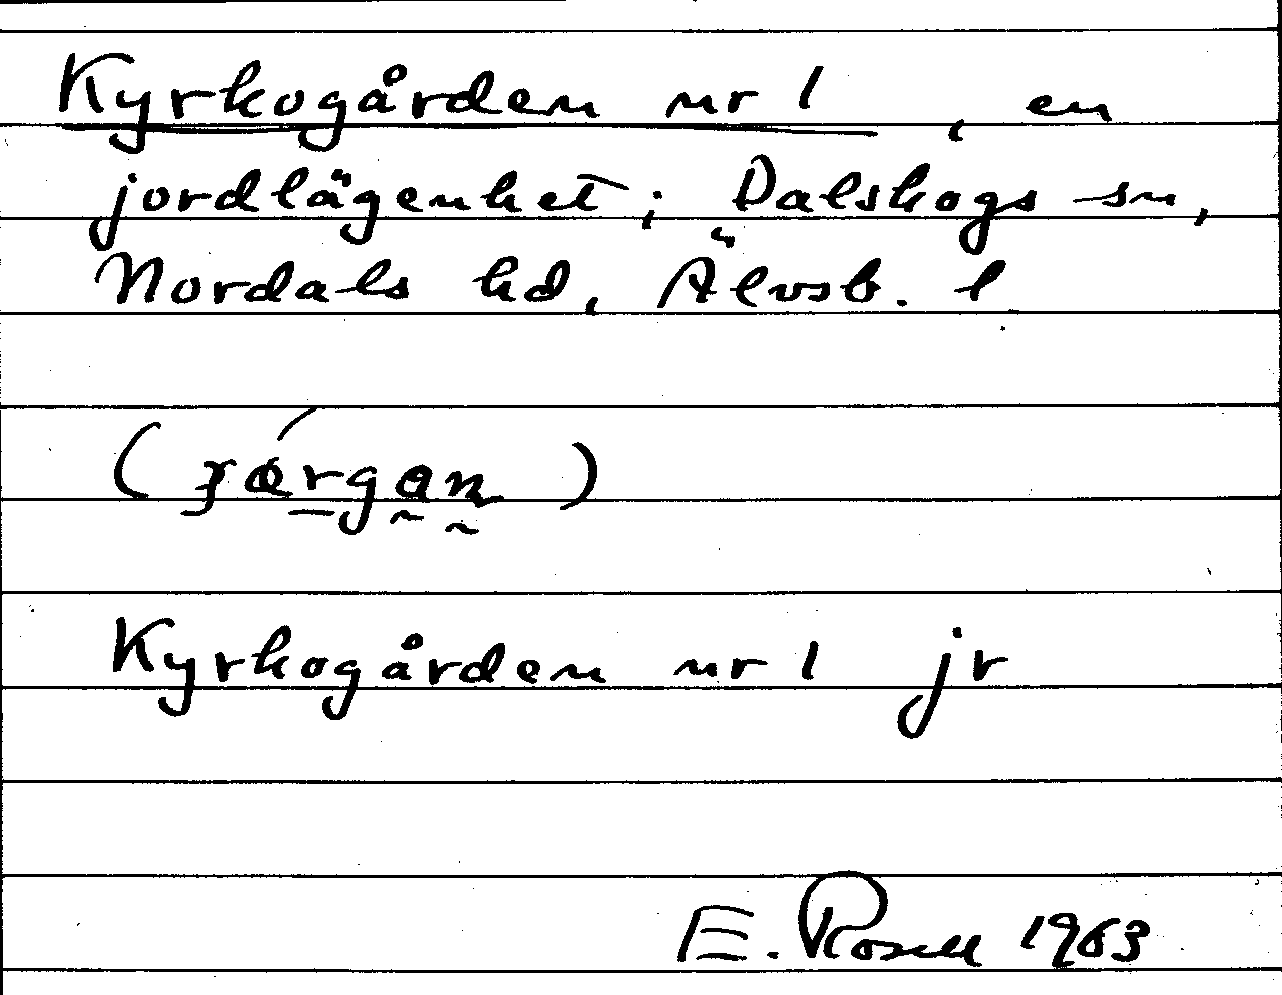 Kyrkogården nr 1, en
jordlägenhet; Dalskogs sn,
Nordals hd, Älvsb. l
Kyrkogården nr 1 jr
E. Rosell 1963